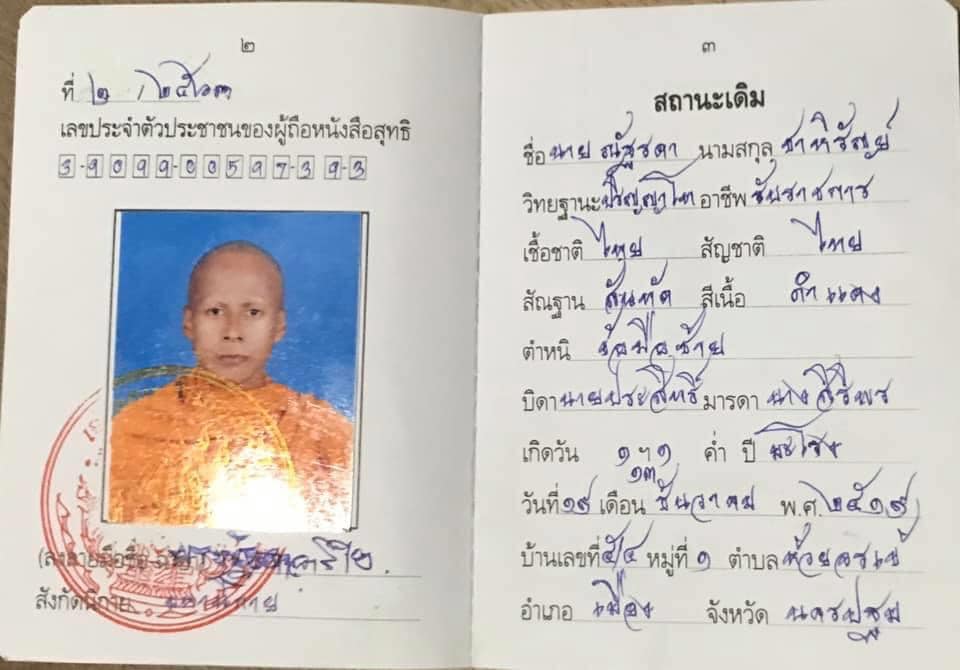 ๒
ที่ ๒ / ๒๕๖๓
เลขประจำตัวประชาชนของผู้ถือหนังสือสุทธิ
3-9099-00597-39-3
(ลงลายมือชื่อ
สังกัดนิกาย มหานิกาย
๓
สถานะเดิม
ชื่อ นาย ณัฐรดา นามสกุล
วิทยฐานะ ปริญญาโท อาชีพ รับราชการ
เชื้อชาติ ไทย สัญชาติ ไทย
สัณฐาน สันทัด สีเนื้อ ดำแดง
ตำหนิ ข้อมือซ้าย
บิดา นายประสิทธิ์ มารดา นางสิริพร
เกิดวัน ๑ ฯ ๑ ค่ำ ปี มะโรง
๑๓
วันที่ ๑๙ เดือน ธันวาคม พ.ศ. ๒๕๑๙
บ้านเลขที่ ๕/๔ หมู่ที่ ๑ ตำบล ห้วยจรเข้
อำเภอ เมือง จังหวัด นครปฐม